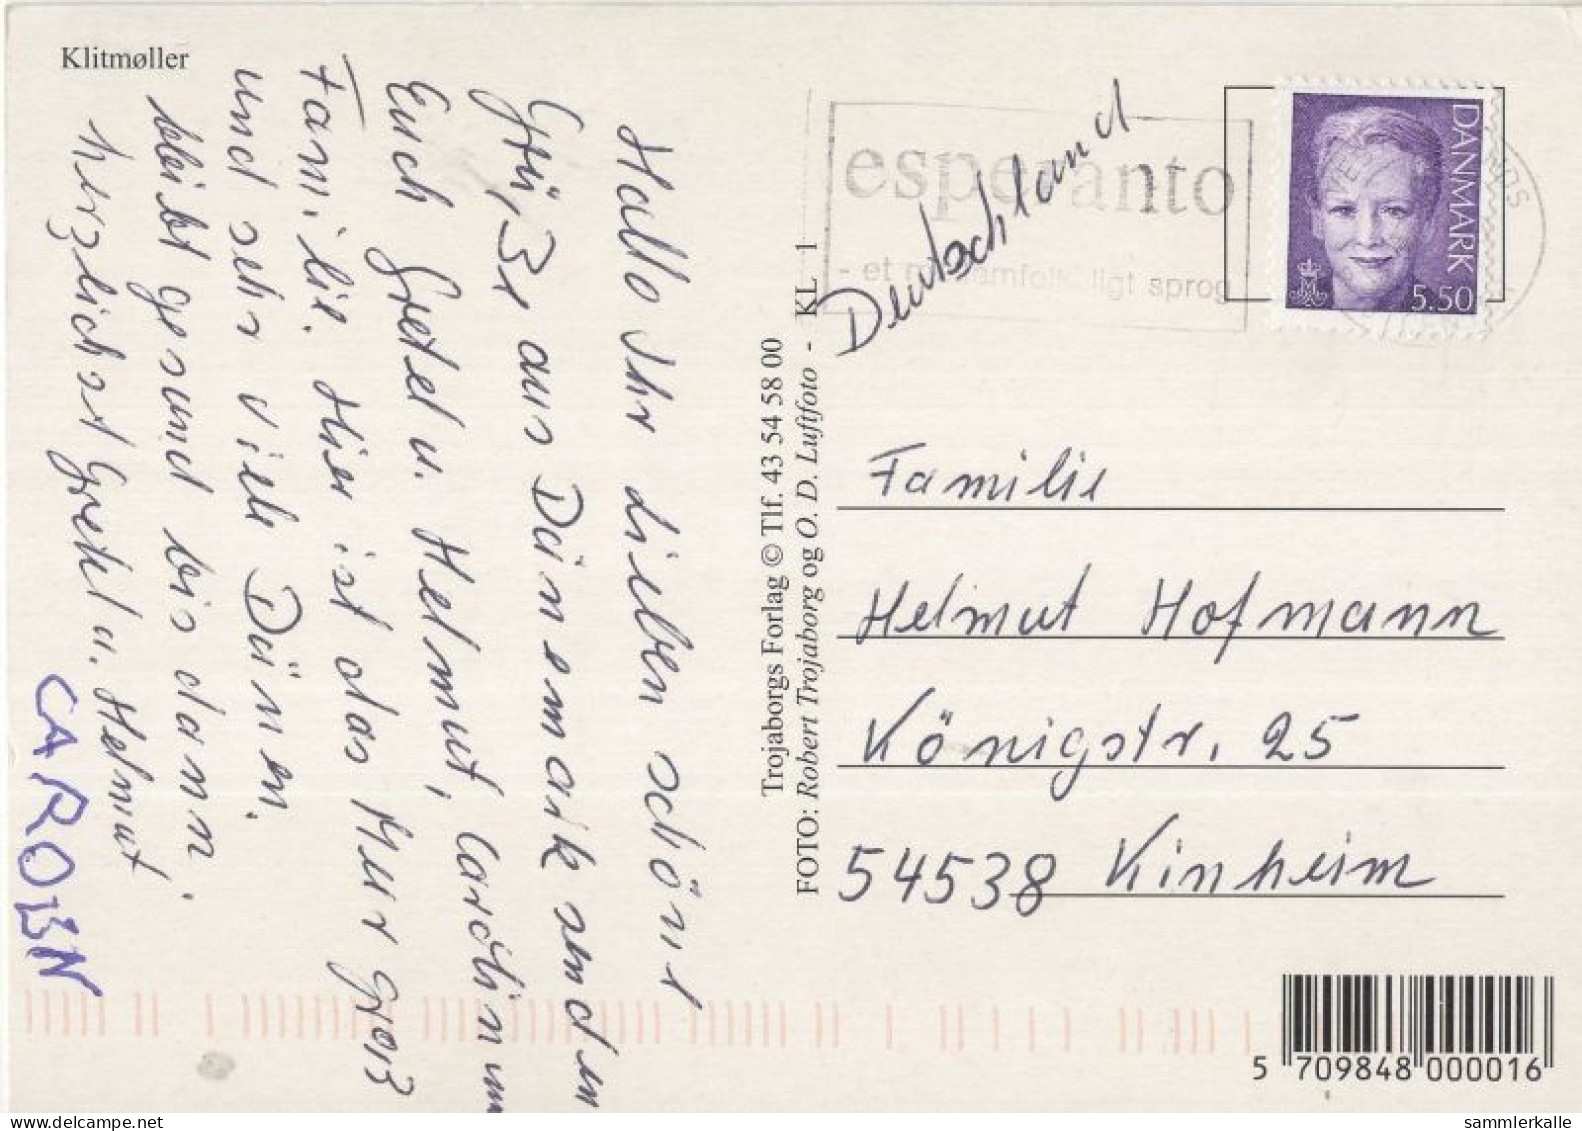 Klitmøller
Hallo Ihr lieben schöne
Grüße aus Dänemark senden
Euch Gretel u. Helmut, Carolin u.
Familie. Hier ist das Meer groß
und sehr viele Dünen.
bleibt gesund bis dann.
herzlichst Gretel u. Helmut
CAROLIN
Trojaborgs Forlag © Tlf. 43 54 58 00
FOTO: Robert Trojaborg og O. D. Luftfoto - KL 1
esperanto
- et mellemfolkeligt sprog
Deutschland
DANMARK
5.50
Familie
Helmut Hofmann
Königstr. 25
54538 Kinheim
5 709848 000016
sammlerkalle